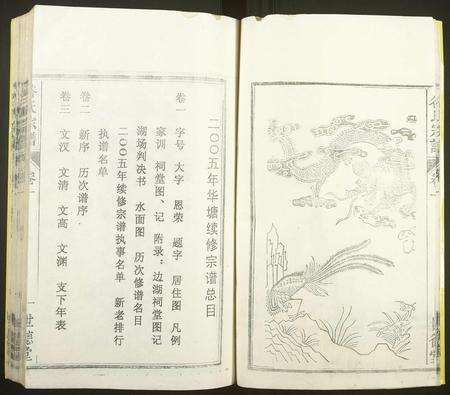 二00五年华塘续修宗谱总目
卷一 字号 大字 恩荣 题字 居住图 凡例
家训 祠堂图、记 附录：边湖祠堂图记
湖场判决书 水面图 历次修谱名目
二00五年续修宗谱执事名单 新老排行
执谱名单
卷二 新序 历次谱序
卷三 文汉 文清 文高 文渊 支下年表
氏宗谱 卷一
一
世德堂
徐氏宗譜 卷一